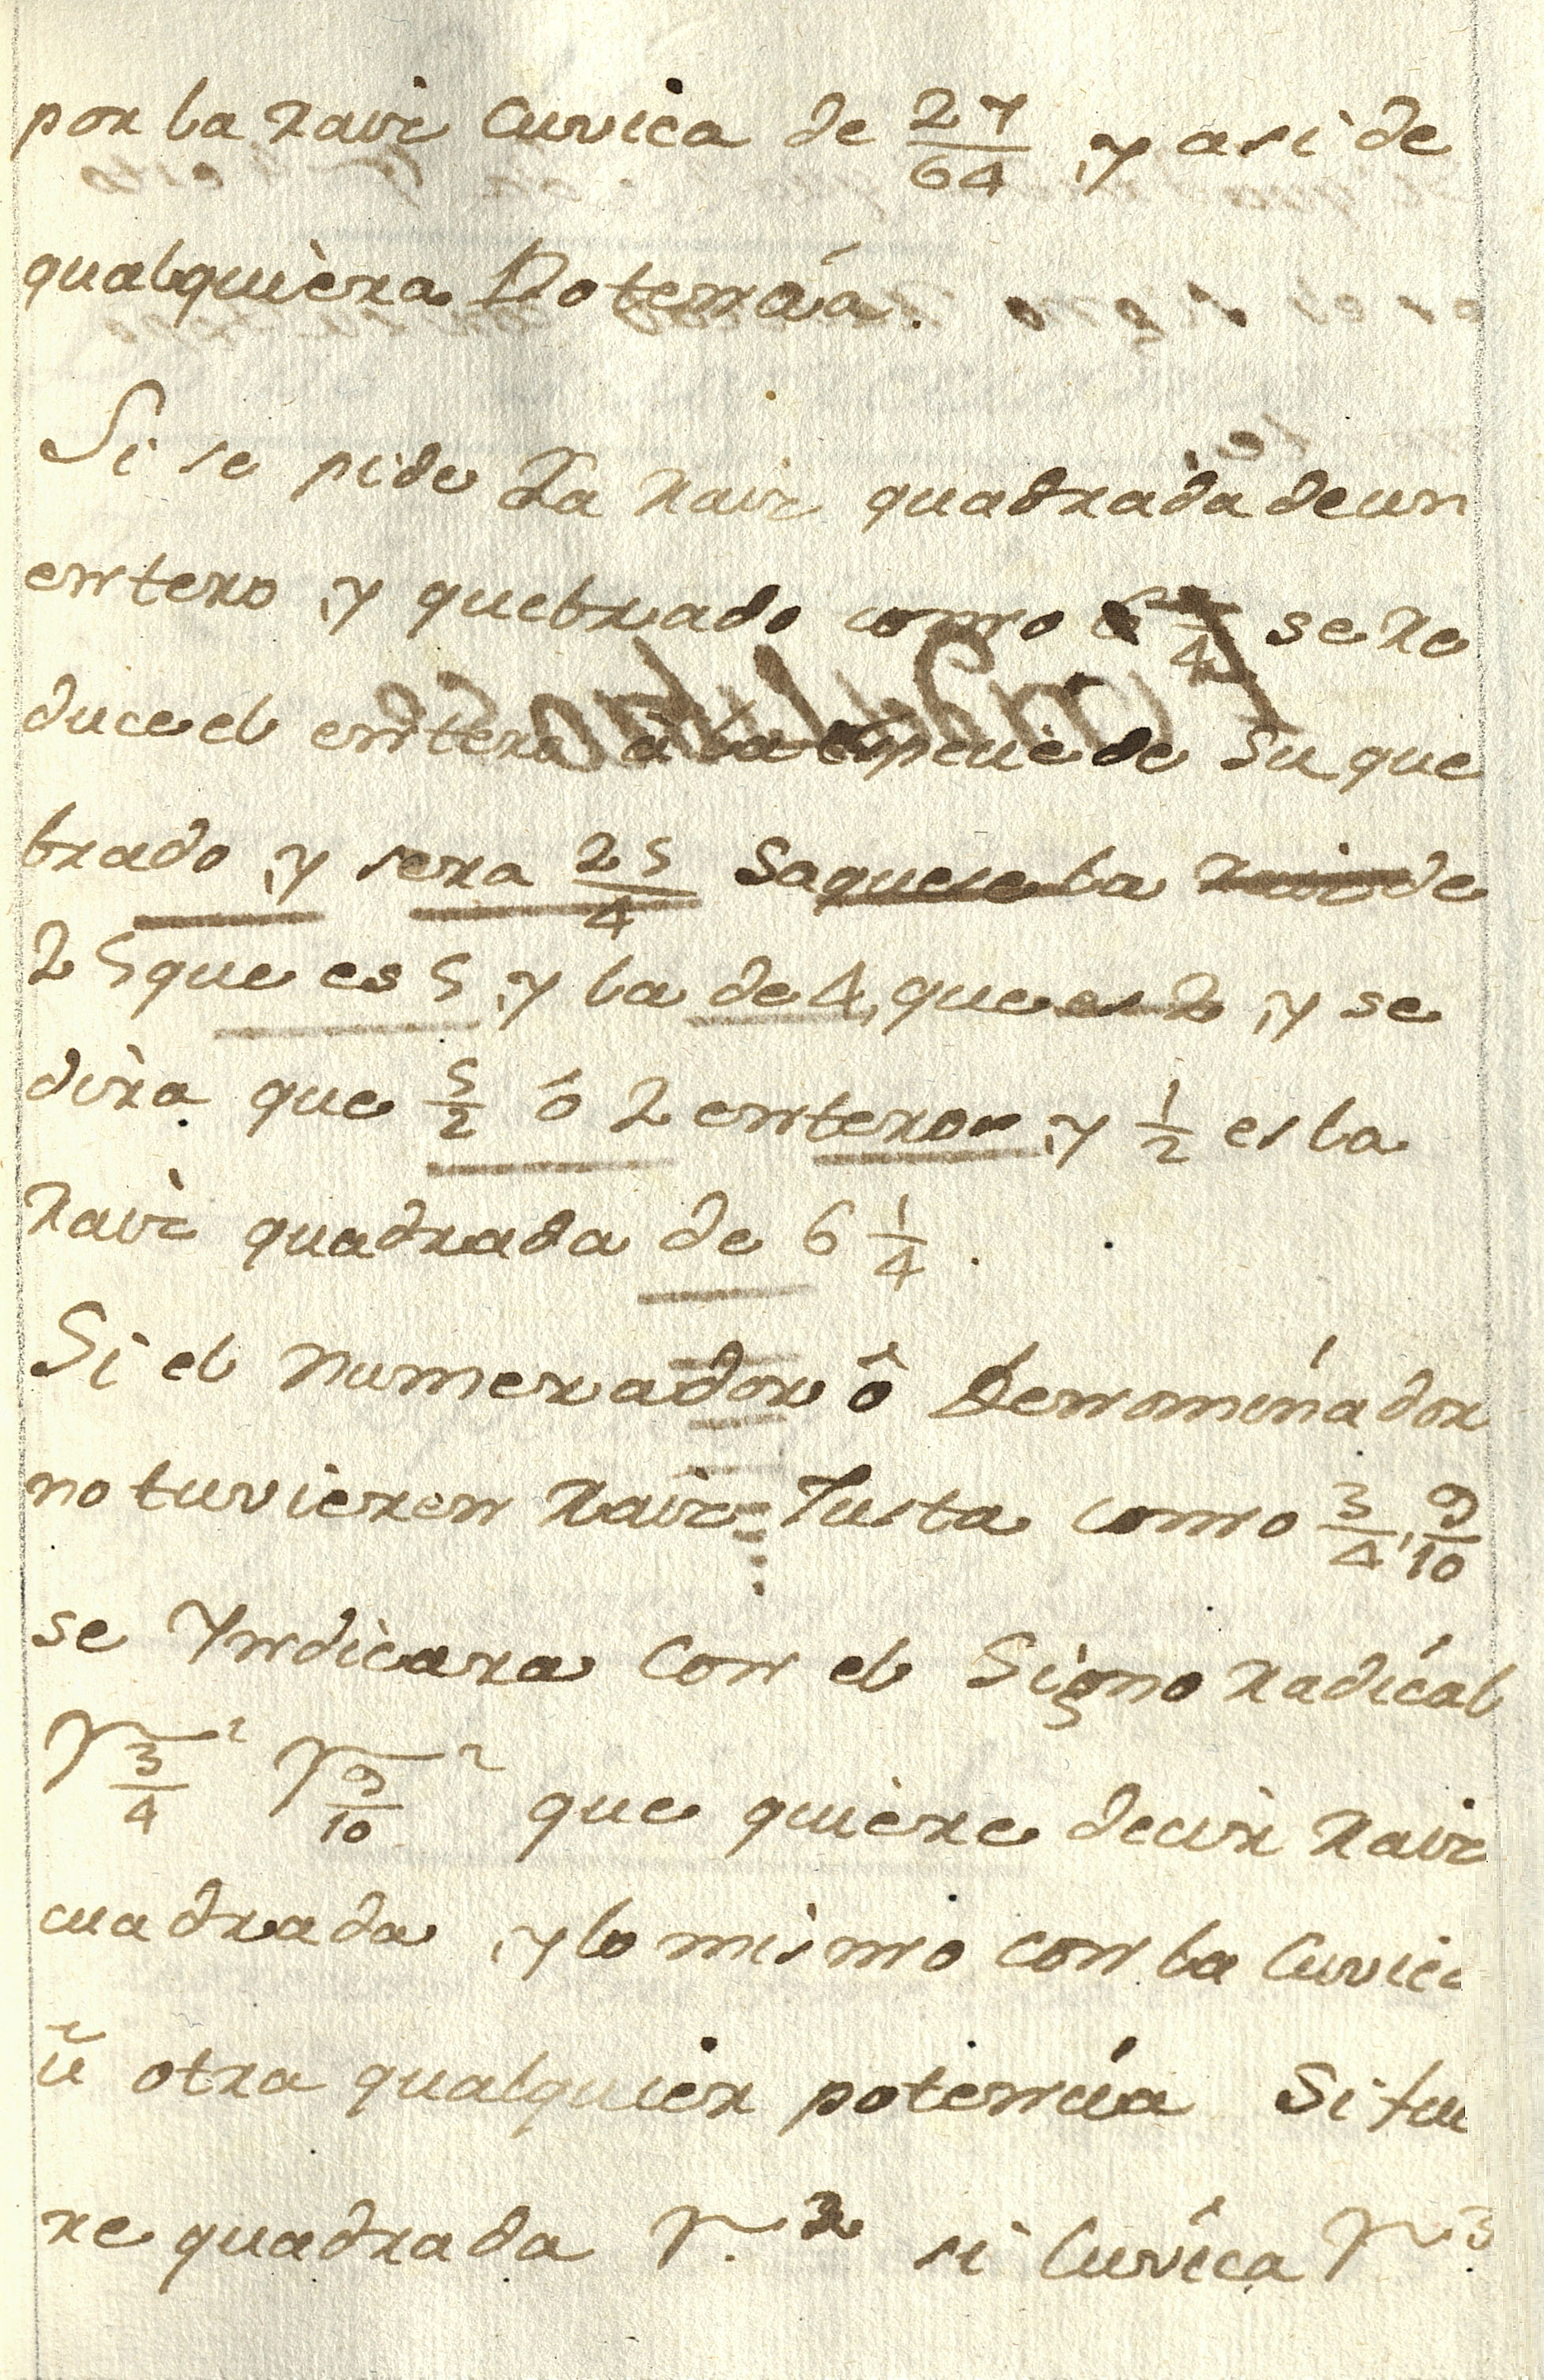 por la raiz cuvica de 27/64, y asi de
qualquièra Potencía.
Si se pide La raiz quadrada de un
entero, y quebrado como 6 1/4 se re
duce el entero à la especie de su que
brado, y sera 25/4 Saquese la raiz de
25 que es 5, y la de 4, que es 2, y se
dira que 5/2 ó 2 enteros, y 1/2 es la
raiz quadrada de 6 1/4.
Si el numerador ô Denominador
no tuvieren raiz Justa como 3/4, 9/10
se Yndicara con el Signo radícal
√3/4 ² √9/10 ² que quière decir raiz
cuadrada, y lo mismo con la Cuvica
ũ otra qualquier potencia Si fue
re quadrada √. 2 si Cuvíca √ 3